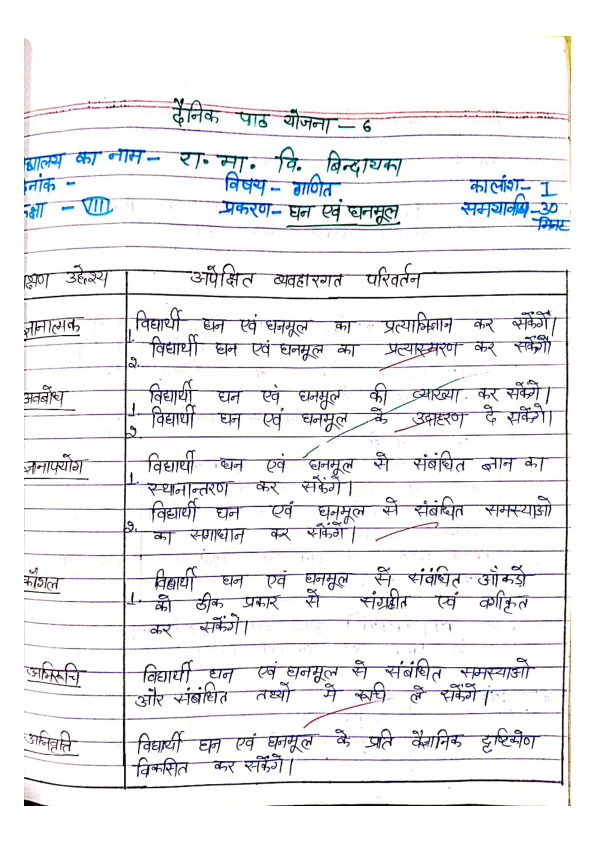 दैनिक पाठ योजना - 6
द्यालय का नाम - रा. मा. वि. बिन्दायका
नांक - विषय - गणित कालांश - I
क्षा - VIII प्रकरण - घन एवं घनमूल समयावधि - 30 मिनट
क्षण उद्देश्य अपेक्षित व्यवहारगत परिवर्तन
ज्ञानात्मक 1. विद्यार्थी घन एवं घनमूल का प्रत्याभिज्ञान कर सकेंगें।
2. विद्यार्थी घन एवं घनमूल का प्रत्यास्मरण कर सकेंगें
अवबोध 1. विद्यार्थी घन एवं घनमूल की व्याख्या कर सकेंगे।
2. विद्यार्थी घन एवं घनमूल के उदाहरण दे सकेंगे।
ज्ञानोपयोग 1. विद्यार्थी घन एवं घनमूल से संबंधित ज्ञान का
स्थानान्तरण कर सकेंगे।
2. विद्यार्थी घन एवं घनमूल से संबंधित समस्याओ
का समाधान कर सकेंगे।
कौशल 1. विद्यार्थी घन एवं घनमूल से संबंधित आँकड़ो
को ठीक प्रकार से संग्रहीत एवं वर्गीकृत
कर सकेंगे।
अभिरूचि विद्यार्थी घन एवं घनमूल से संबंधित समस्याओ
और संबंधित तथ्यो मे रूची ले सकेंगे।
अभिवृत्ति विद्यार्थी घन एवं घनमूल के प्रति वैज्ञानिक दृष्टिकोण
विकसित कर सकेंगे।